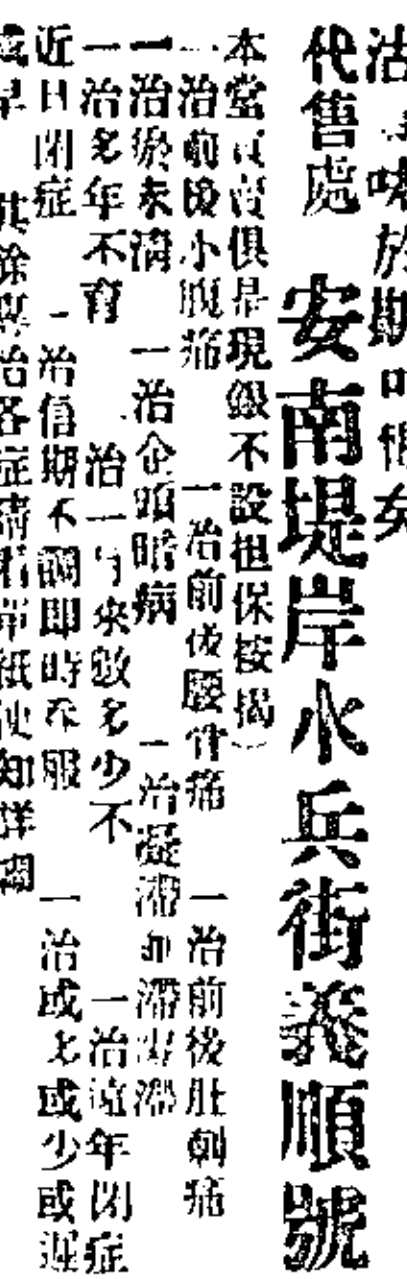 於期
代售處 安南堤岸水兵街義順號
本堂賣俱是現銀不設担保按揭
一治前後小腹痛 一治前後腰骨痛 一治前後肚刺痛
一治瘀未清 一治企頭暗病 一治凝滯血滯
一治多年不育 一治一月來數多少不 一治遠年閉症
近日閉症 一治信期不調即時吞服 一治或多或少或遲
或早 其餘治各症請看帋便知詳